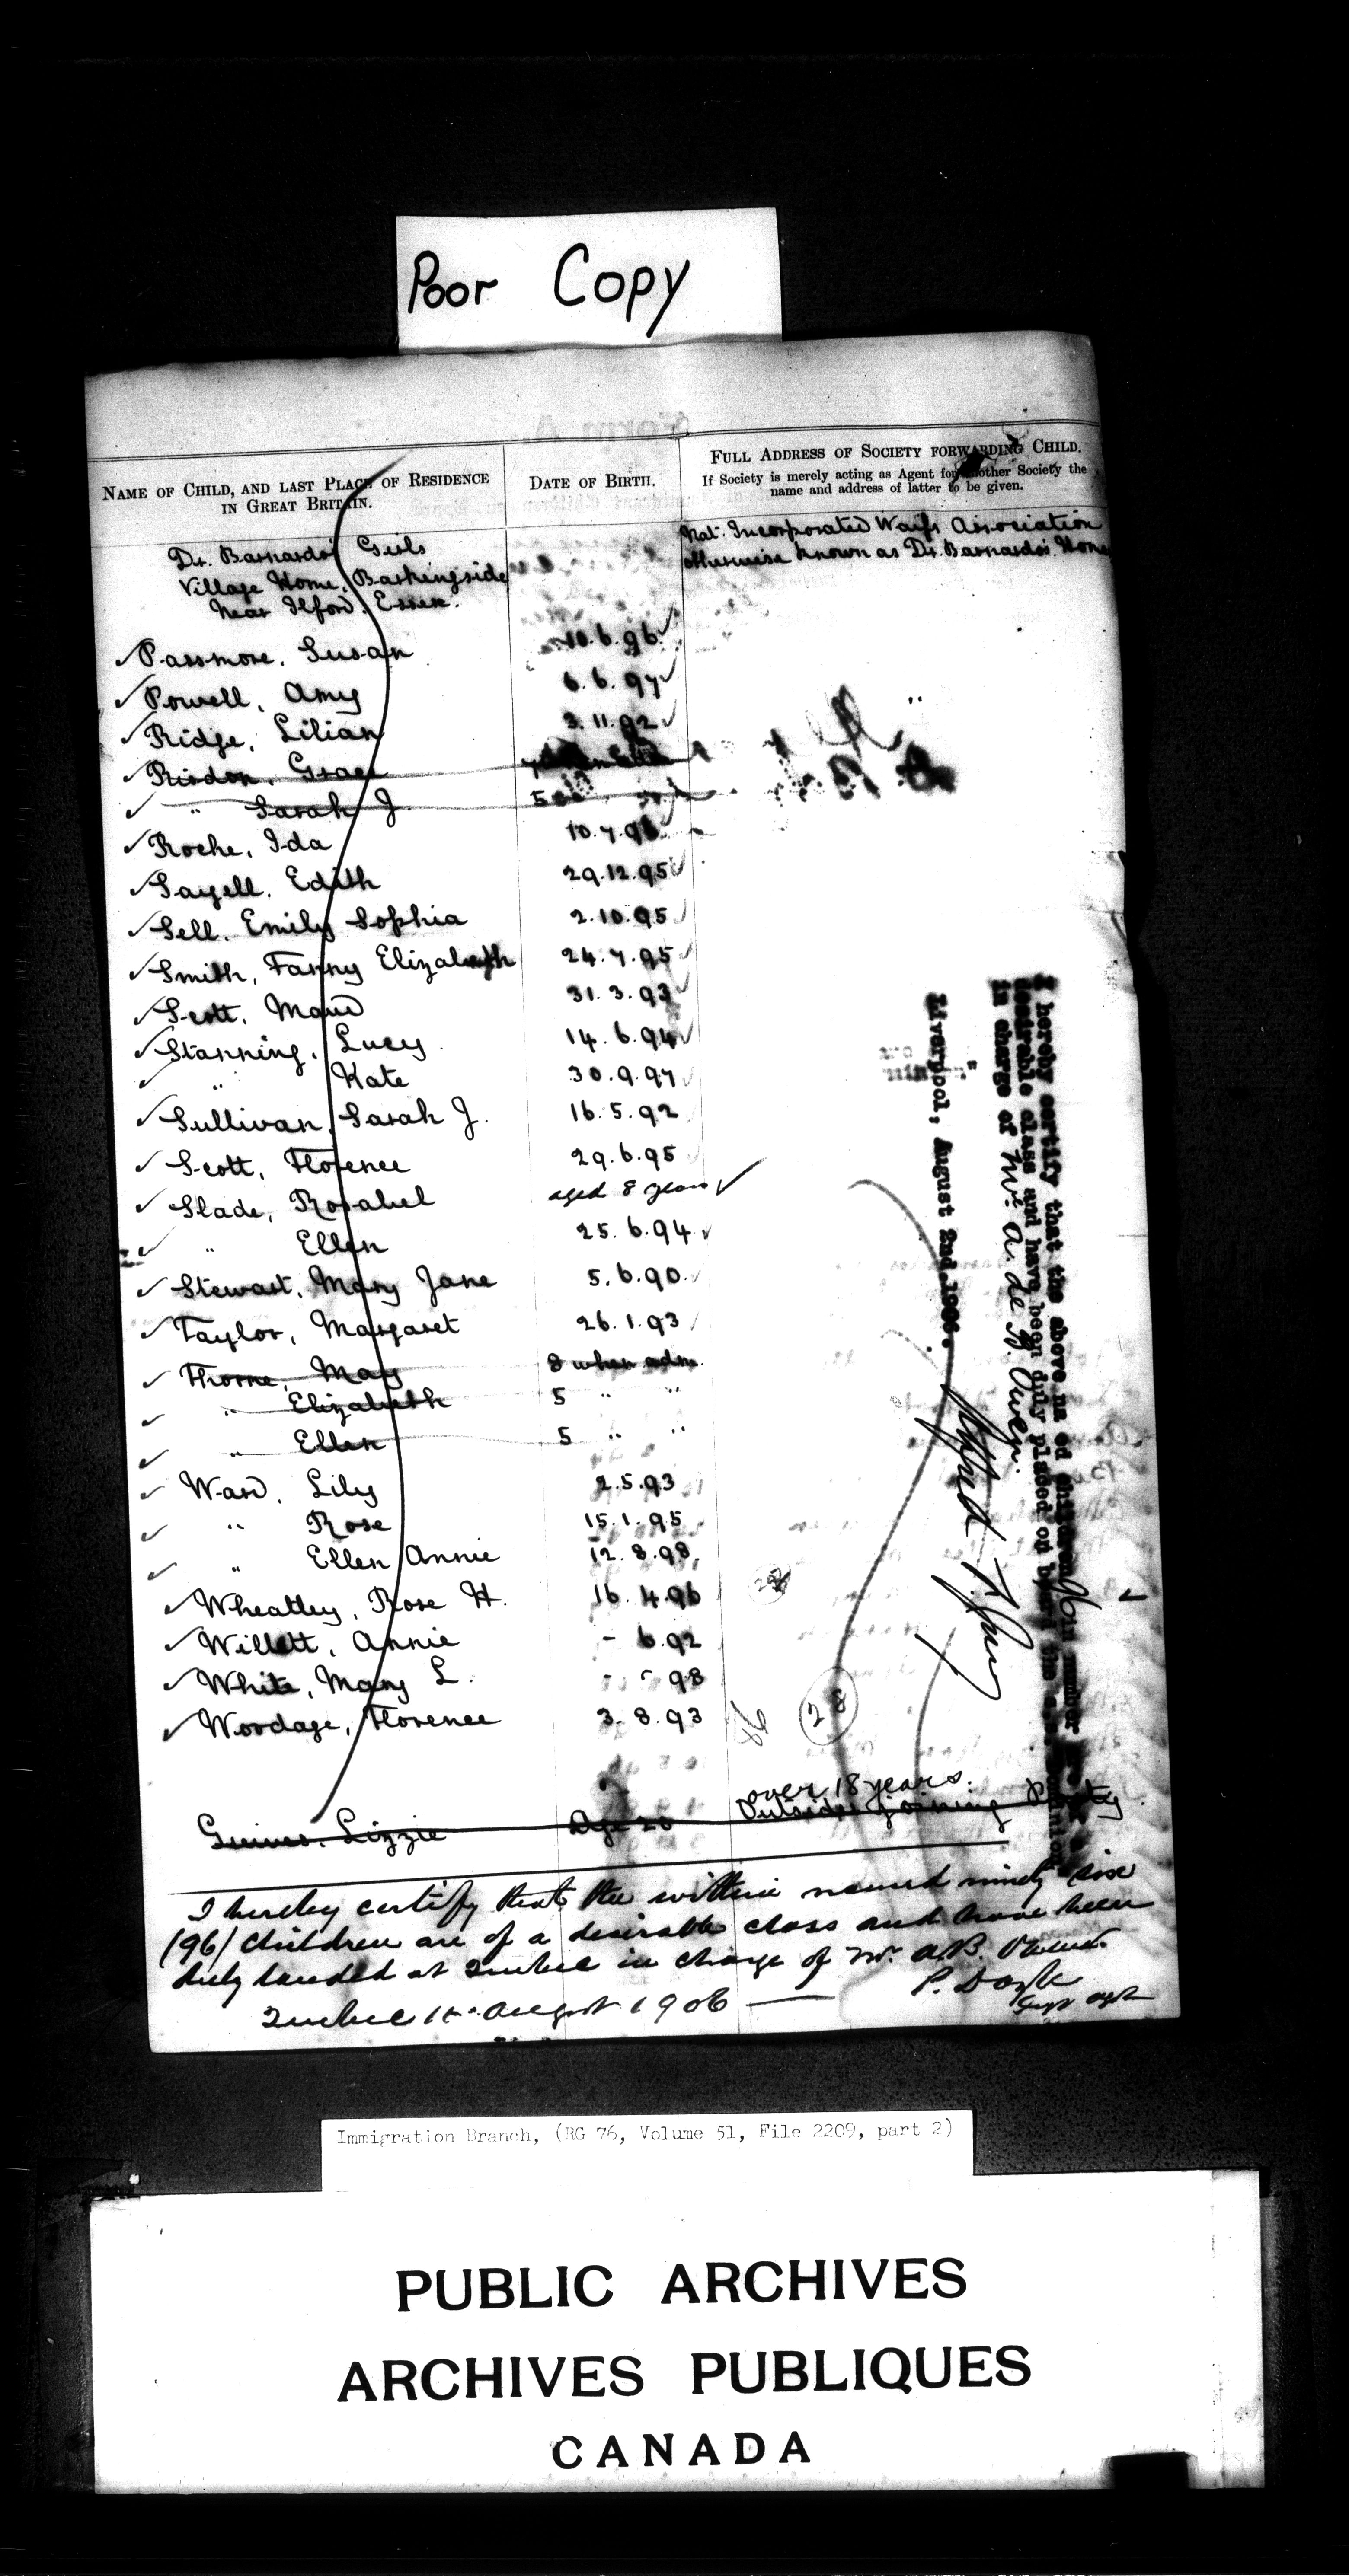 Poor Copy
Form A.
NAME OF CHILD, AND LAST PLACE OF RESIDENCE
IN GREAT BRITAIN.
DATE OF BIRTH.
FULL ADDRESS OF SOCIETY FORWARDING CHILD.
If Society is merely acting as Agent for another Society the
name and address of latter to be given.
Dr. Barnardo's Girls
Village Home, Barkingside
Near Ilford, Essex.
Nat. Incorporated Waifs Association
otherwise known as Dr. Barnardo's Home
✓ Passmore, Susan 10.6.96 ✓
✓ Powell, Amy 6.6.97 ✓
✓ Ridge, Lilian 3.11.92 ✓
✓ Risdon, Grace
✓ " Sarah J. 5
✓ Roche, Ida 10.7.96
✓ Sayell, Edith 29.12.95 ✓
✓ Sell, Emily Sophia 2.10.95 ✓
✓ Smith, Fanny Elizabeth 24.7.95 ✓
✓ Scott, Maud 31.3.93 ✓
✓ Stanning, Lucy 14.6.94 ✓
✓ " Kate 30.9.97 ✓
✓ Sullivan, Sarah J. 16.5.92
✓ Scott, Florence 29.6.95
✓ Slade, Rosabel aged 8 years ✓
✓ " Ellen 25.6.94 ✓
✓ Stewart, Mary Jane 5.6.90 ✓
✓ Taylor, Margaret 26.1.93 ✓
✓ Thorne, May 8 when adm.
✓ " Elizabeth 5 " "
✓ " Ellen 5 " "
✓ Ward, Lily 2.5.93
✓ " Rose 15.1.95
✓ " Ellen Annie 12.8.98
✓ Wheatley, Rose H. 16.4.96
✓ Willett, Annie - 6.92
✓ White, Mary L. - - 98
✓ Woodage, Florence 3.8.93
28
28
Lizzie Age 20
over 18 years.
Outsider joining Party
I hereby certify that the above na ed children 96 in number are
desirable class and have been duly placed on board the
in charge of Mr. A. de B. Owen.
Liverpool, August 2nd.1906.
I hereby certify that the within named ninety six
(96) children are of a desirable class and have been
duly landed at Quebec in charge of Mr. A.B. Owen.
P. Doyle
Quebec August 1906
Immigration Branch, (RG 76, Volume 51, File 2209, part 2)
PUBLIC ARCHIVES
ARCHIVES PUBLIQUES
CANADA